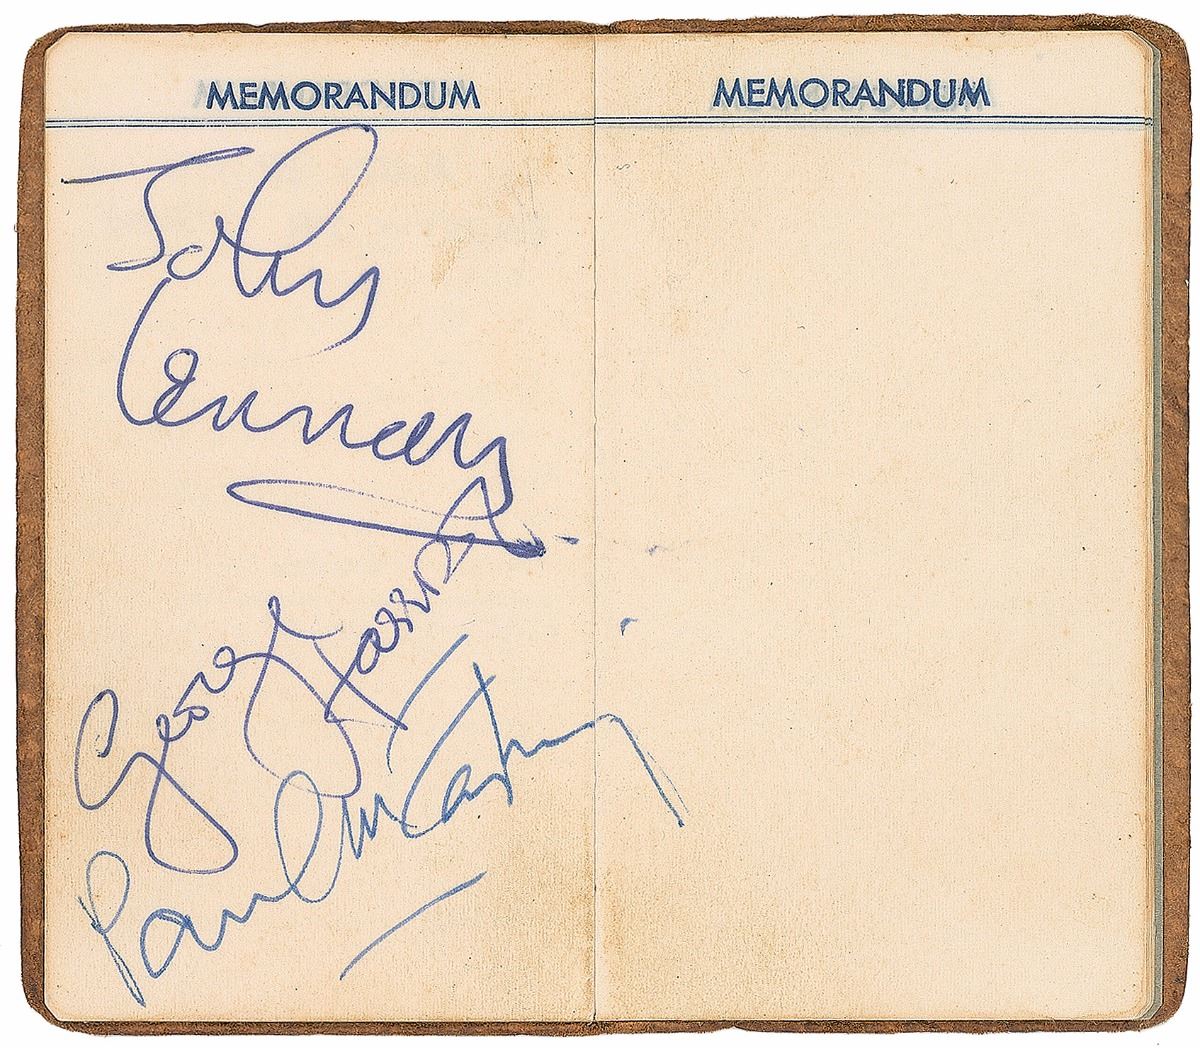 MEMORANDUM
John
Lennon
George Harrison
Paul McCartney
MEMORANDUM